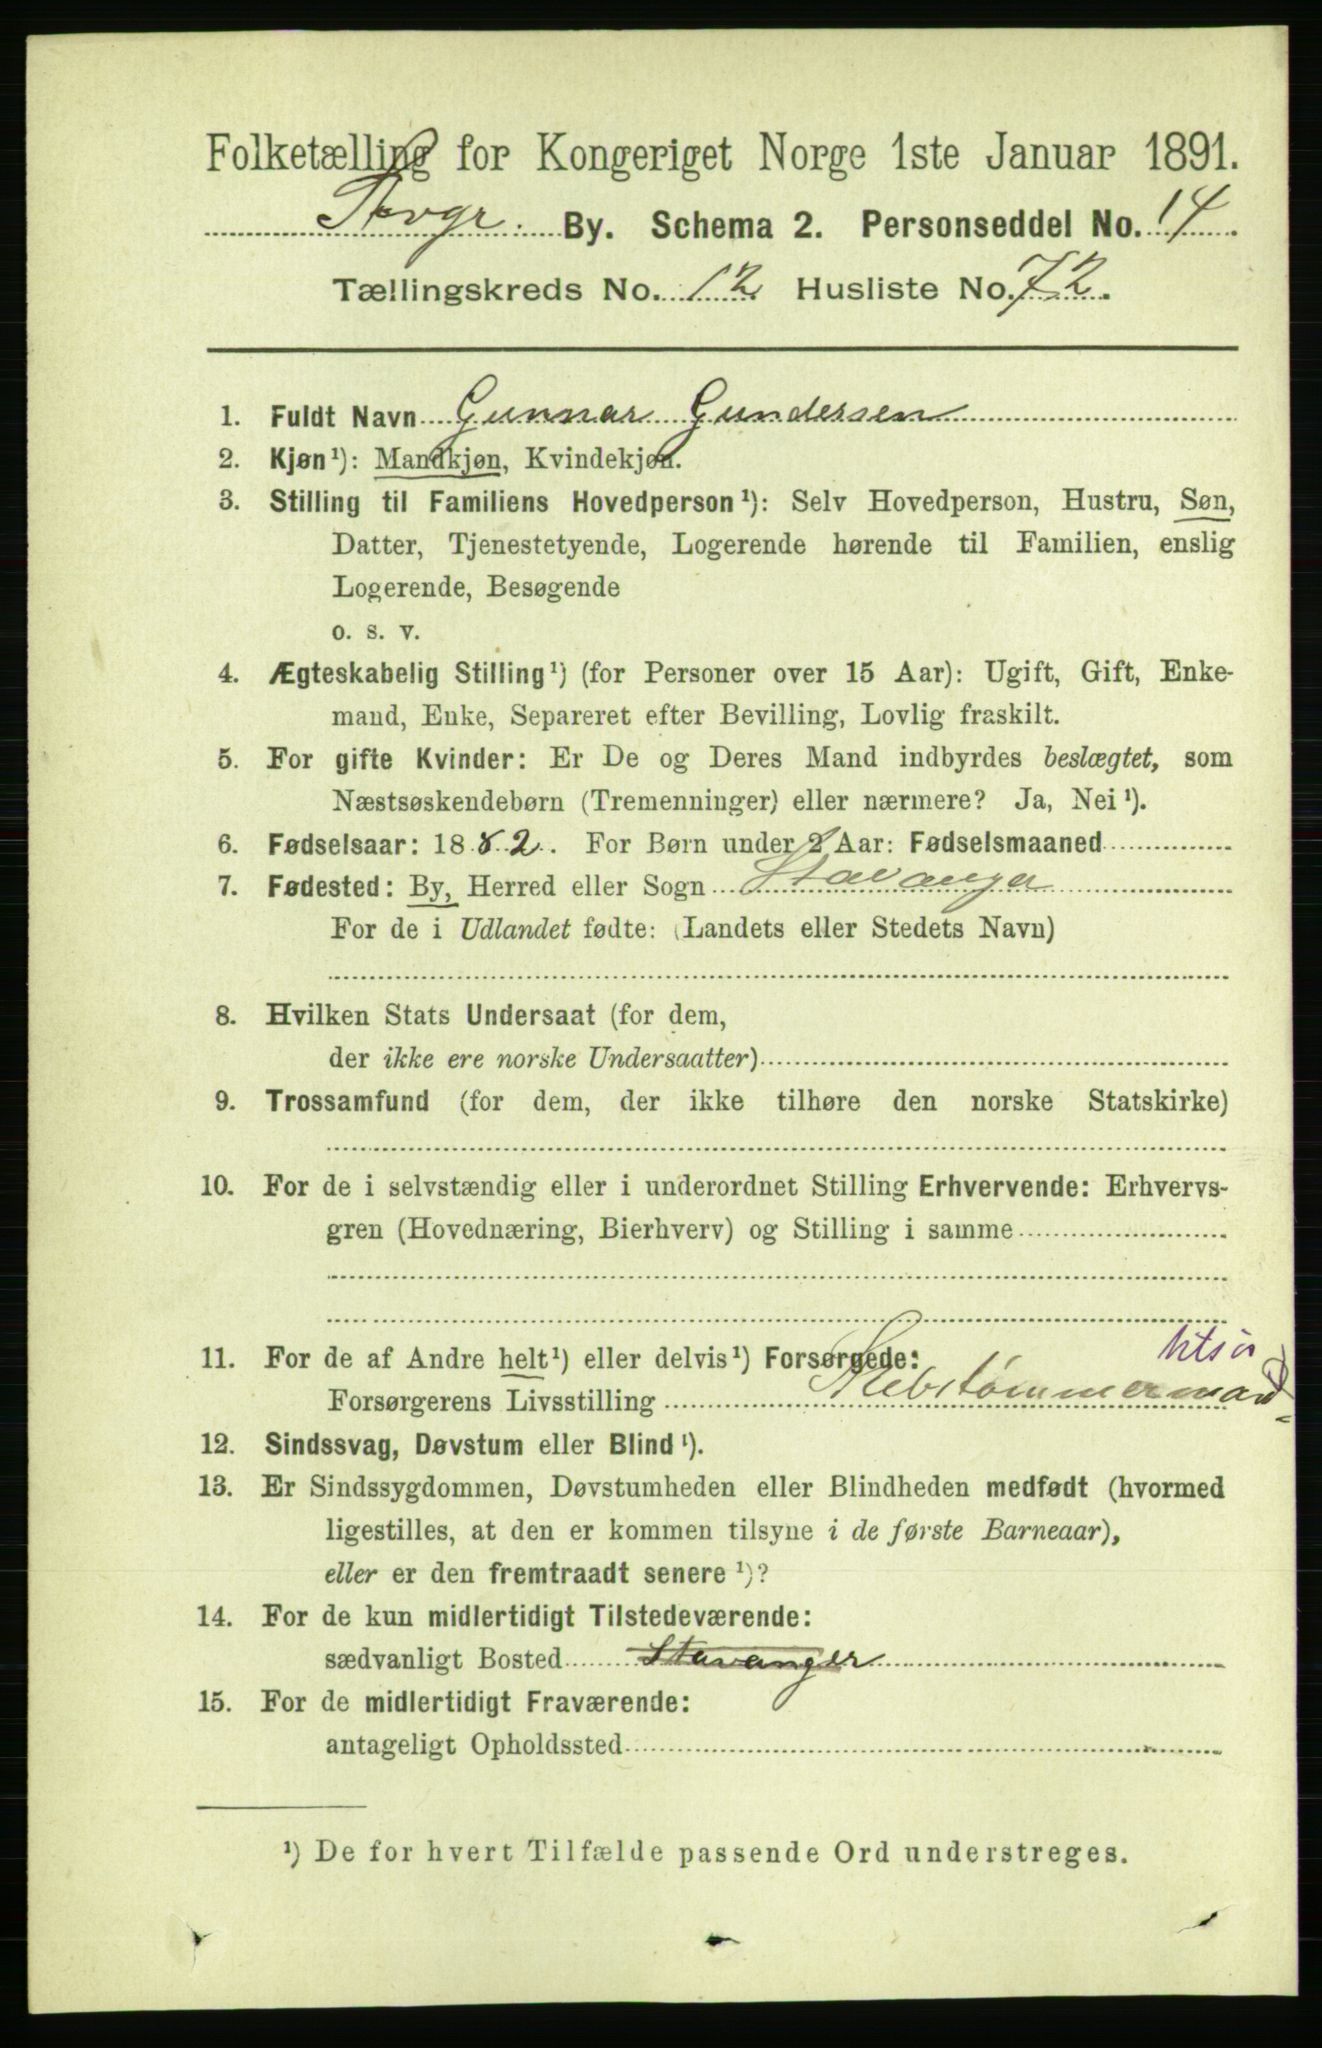 Folketælling for Kongeriget Norge 1ste Januar 1891.
Stvgr. By. Schema 2. Personseddel No. 14.
Tællingskreds No. 12 Husliste No. 72.
1. Fuldt Navn Gunnar Gundersen
2. Kjøn¹): Mandkjøn, Kvindekjøn.
3. Stilling til Familiens Hovedperson¹): Selv Hovedperson, Hustru, Søn,
Datter, Tjenestetyende, Logerende hørende til Familien, enslig
Logerende, Besøgende
o. s. v.
4. Ægteskabelig Stilling¹) (for Personer over 15 Aar): Ugift, Gift, Enke-
mand, Enke, Separeret efter Bevilling, Lovlig fraskilt.
5. For gifte Kvinder: Er De og Deres Mand indbyrdes beslægtet, som
Næstsøskendebørn (Tremenninger) eller nærmere? Ja, Nei¹).
6. Fødselsaar: 1882. For Børn under 2 Aar: Fødselsmaaned
7. Fødested: By, Herred eller Sogn Stavanger
For de i Udlandet fødte: (Landets eller Stedets Navn)
8. Hvilken Stats Undersaat (for dem,
der ikke ere norske Undersaatter)
9. Trossamfund (for dem, der ikke tilhøre den norske Statskirke)
10. For de i selvstændig eller i underordnet Stilling Erhvervende: Erhvervs-
gren (Hovednæring, Bierhverv) og Stilling i samme
11. For de af Andre helt¹) eller delvis¹) Forsørgede:
Forsørgerens Livsstilling Skibstømmermand
12. Sindssvag, Døvstum eller Blind¹).
13. Er Sindssygdommen, Døvstumheden eller Blindheden medfødt (hvormed
ligestilles, at den er kommen tilsyne i de første Barneaar),
eller er den fremtraadt senere¹)?
14. For de kun midlertidigt Tilstedeværende:
sædvanligt Bosted Stavanger
15. For de midlertidigt Fraværende:
antageligt Opholdssted
¹) De for hvert Tilfælde passende Ord understreges.